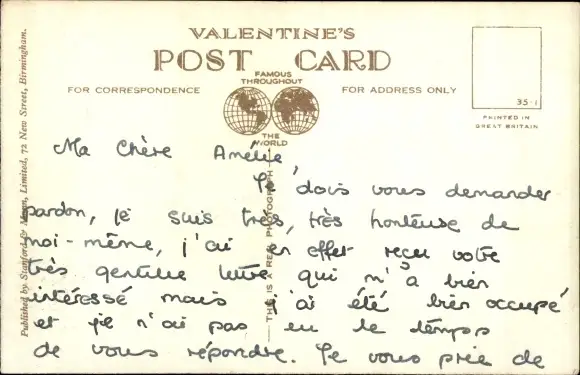 VALENTINE'S
POST CARD
FAMOUS
THROUGHOUT
THE
WORLD
FOR CORRESPONDENCE
FOR ADDRESS ONLY
35-1
PRINTED IN
GREAT BRITAIN
Published by Stanford & Mann, Limited, 72 New Street, Birmingham.
THIS IS A REAL PHOTOGRAPH
Ma Chère Amélie
Je dois vous demander
pardon, je suis très, très honteuse de
moi-même, j'ai en effet reçu votre
très gentille lettre qui m'a bien
intéressé mais j'ai été bien occupé
et je n'ai pas eu le temps
de vous répondre. Je vous prie de